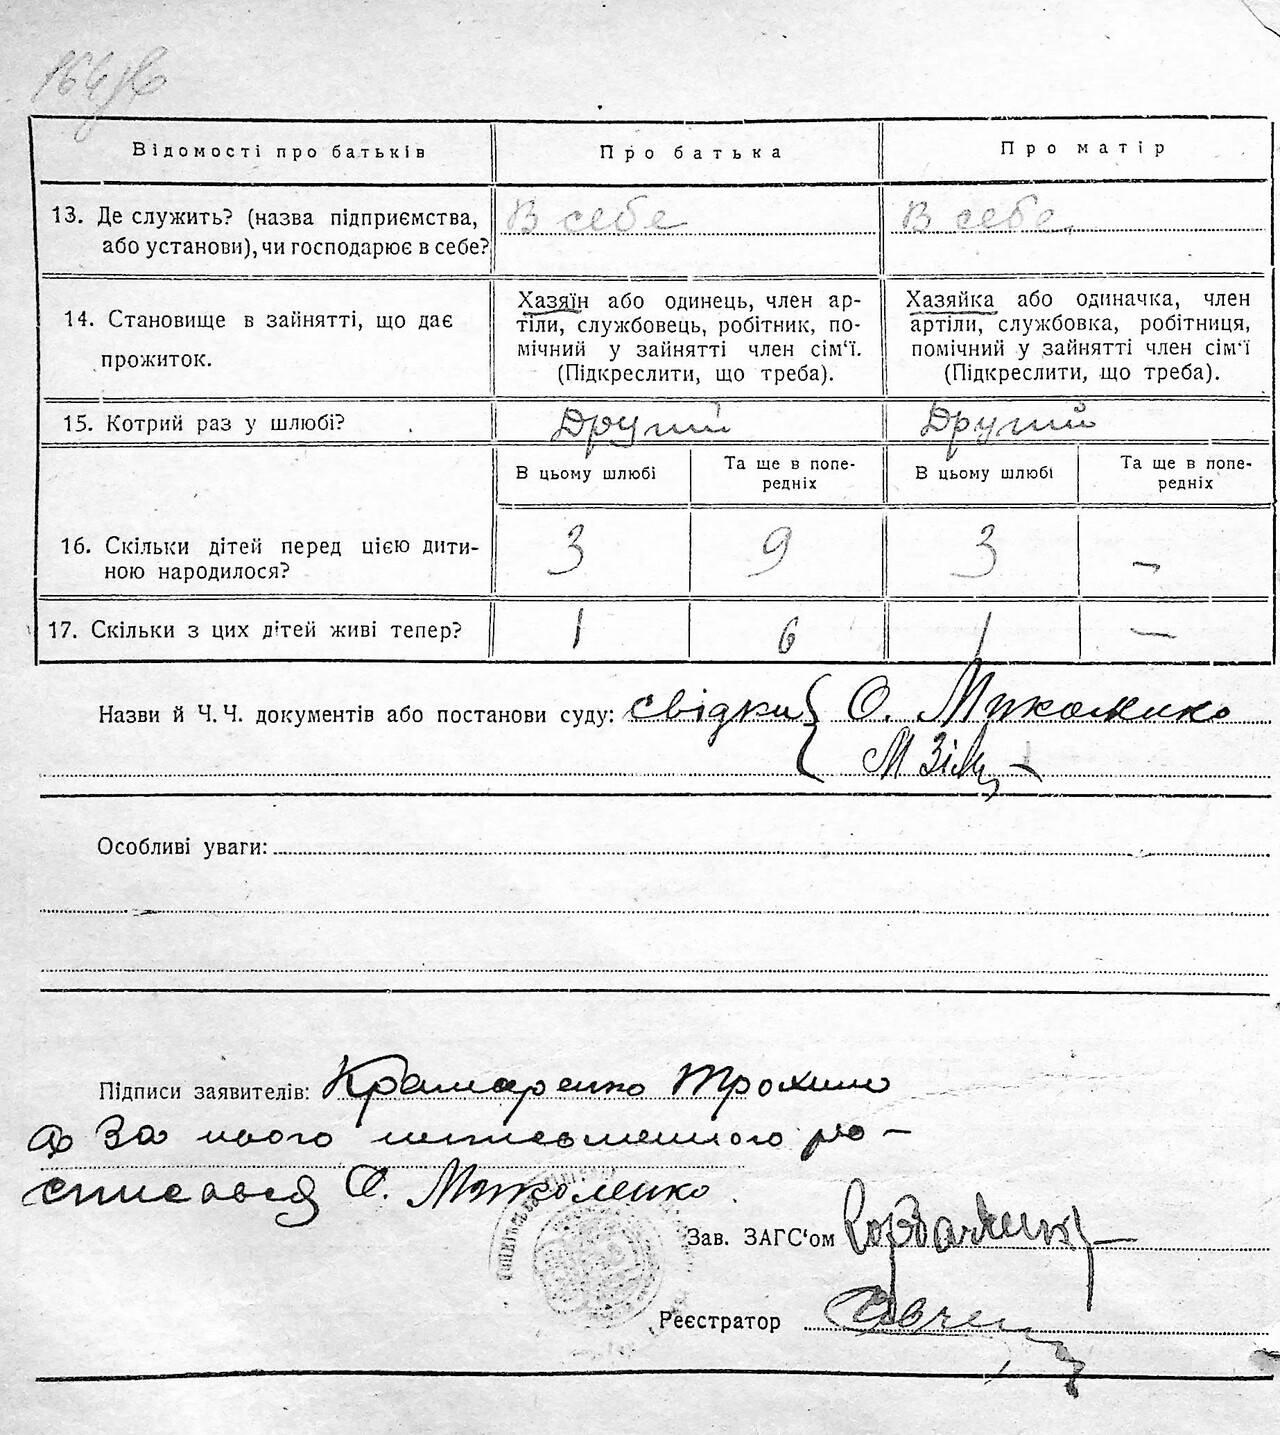 Відомості про батьків
Про батька
Про матір
13. Де служить? (назва підприємства,
або установи), чи господарює в себе?
В себе
В себе
14. Становище в зайнятті, що дає
прожиток.
Хазяїн або одинець, член ар-
тіли, службовець, робітник, по-
мічний у зайнятті член сім'ї.
(Підкреслити, що треба).
Хазяйка або одиначка, член
артіли, службовка, робітниця,
помічний у зайнятті член сім'ї
(Підкреслити, що треба).
15. Котрий раз у шлюбі?
Другий
Другий
В цьому шлюбі
Та ще в попе-
редніх
В цьому шлюбі
Та ще в попе-
редніх
16. Скільки дітей перед цією дити-
ною народилося?
3
9
3
–
17. Скільки з цих дітей живі тепер?
1
6
1
–
Назви й Ч. Ч. документів або постанови суду: свідки { О. Миколенко
М
Особливі уваги:
Підписи заявителів: Крамаренко Трохим
а за нього неписьменного ро-
списався О. Миколенко
Зав. ЗАГС'ом
Реєстратор